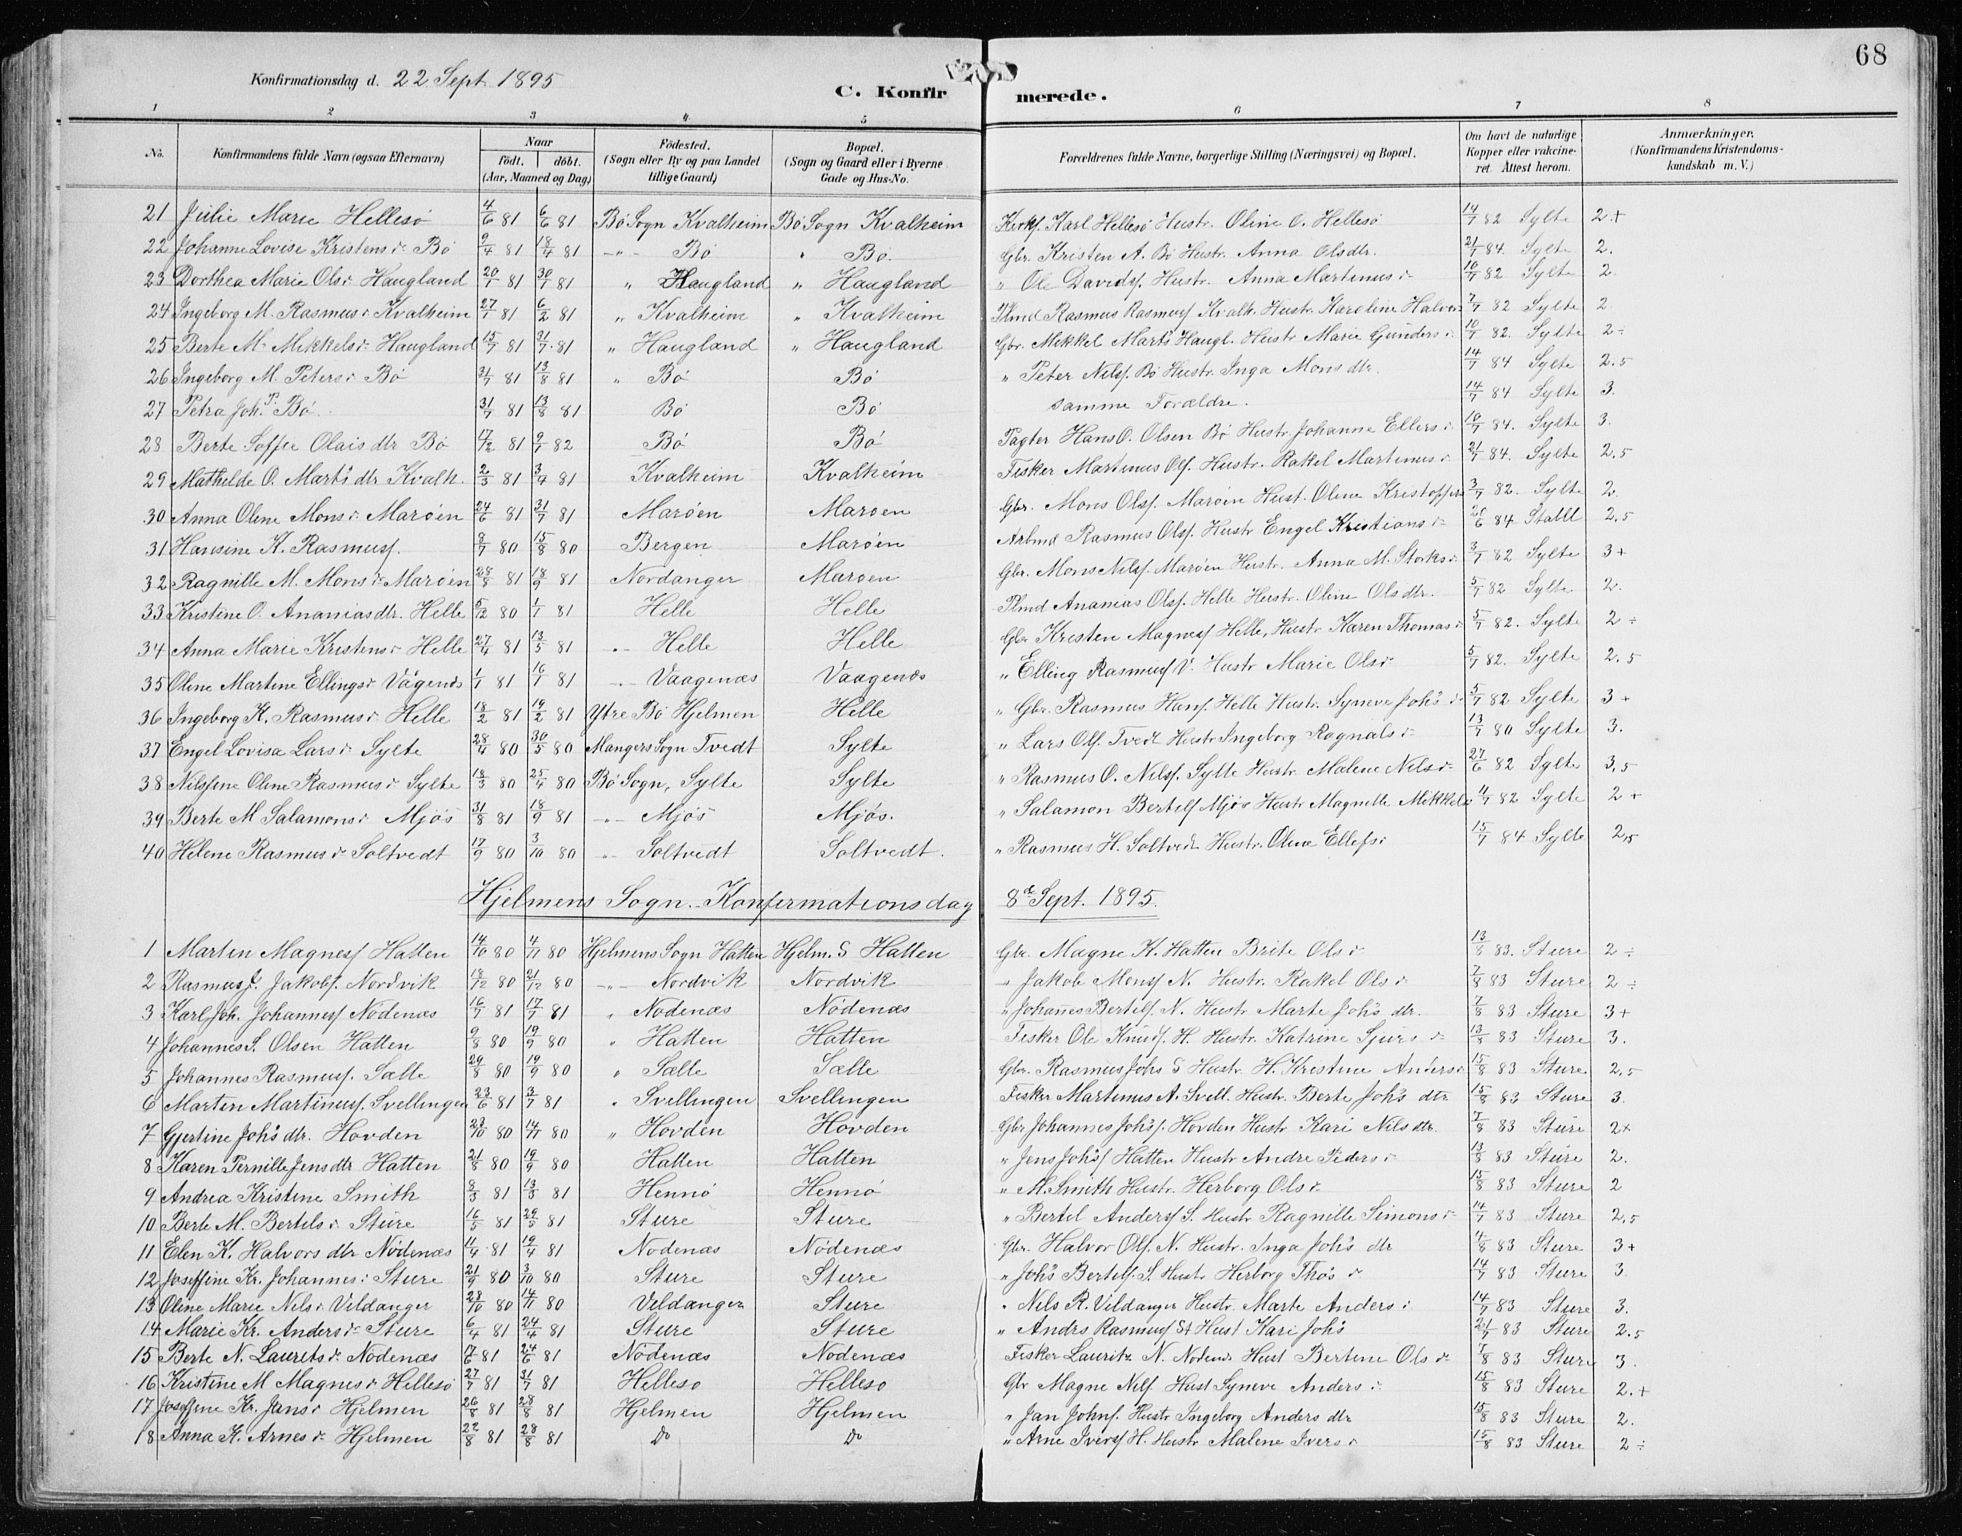 68
Konfirmationsdag d. 22 Sept. 1895
C. Konfirmerede.
1 2 3 4 5 6 7 8
No. Konfirmandens fulde Navn (ogsaa Efternavn) Naar födt. döbt. (Aar, Maaned og Dag) Födested. (Sogn eller By og paa Landet tillige Gaard) Bopæl. (Sogn og Gaard eller i Byerne Gade og Hus-No. Forældrenes fulde Navne, borgerlige Stilling (Næringsvei) og Bopæl. Om havt de naturlige Kopper eller vakcineret. Attest herom. Anmærkninger. (Konfirmandens Kristendomskundskab m. V.)
21 Julie Marie Hellesö 4/6 81 6/6 81 Bö Sogn Kvalheim Bö Sogn Kvalheim Karl Hellesö Hustr. Oline O. Hellesö 14/7 82 Sylte 2+
22 Johanne Lovise Kristensdr Bö 9/4 81 18/4 81 -"- Bö " Bö. Gbr. Kristen A. Bö Hustr. Anna Olsdtr. 21/7 84. Sylte 2.
23 Dorthea Marie Olsdr Haugland 20/7 81 30/7 81 " Haugland " Haugland " Ole Davids. Hustr. Anna Martinusdr 10/7 82 Sylte 2.
24 Ingeborg M. Rasmusdr Kvalheim 27/1 81 6/2 81 " Kvalheim " Kvalheim Plmd Rasmus Rasmuss Kvalh. Hustr. Karoline Halvors 7/7 82 Sylte 2
25 Berte M. Mikkelsdr Haugland 15/7 81 31/7 81 " Haugland " Haugland Gbr. Mikkel Marts Haugl. Hustr Marie Gundersdr 10/7 82. Sylte 2÷
26 Ingeborg M. Petersdr Bö 31/7 81 13/8 81 " Bö Bö " Peter Nilss. Bö Hustr. Inga Monsdtr. 14/7 84 Sylte 2.5
27 Petra Joh. P. Bö 31/7 81 13/8 81 Bö Bö samme Forældre. 14/7 84 Sylte 3.
28 Berte Soffie Olaisdtr Bö 17/12 81 9/1 82 Bö Bö Pagter Hans O. Olsen Bö Hustr Johanne Ellersdr 10/7 84. Sylte 3.
29 Mathilde O. Marts dtr Kvalh. 2/3 81 3/4 81 Kvalheim Kvalheim Fisker Martinus Ols. Hustr. Rakel Martinusdr 21/7 84. Sylte 2,5
30 Anna Oline Monsdr Maröen 24/6 81 31/7 81 Maröen Maroen Gbr. Mons Olss. Maröen Hust. Oline Kristoffers 3/7 82. Sylte 2.
31 Hansine K. Rasmuss. 8/7 80 15/8 80 Bergen Maröen Arbmd Rasmus Olss. Hustr Engel Kristiansdr 20/6 84 Stabll 2,5
32 Ragnille M. Monsdr Maröen 28/8 81 18/9 81 Nordanger Maroen Gbr. Mons Nilss. Maröen Hustr. Anna M. Storksdr 3/7 82 Sylte 3+
33 Kristine O. Ananiasdtr. Helle 5/12 80 1/1 81 Helle Helle Plmd Ananias Olss. Helle Hustr. Oline Olsdtr. 5/7 82 Sylte 2.
34 Anna Marie Kristensdr Helle 27/4 81 13/5 81 -"- Helle Helle Gbr Kristen Magness Helle, Hustr. Karen Thomasdr 5/7 82. Sylte 2÷
35 Oline Martine Ellingsdr Vågenes 1/1 81 16/1 81 -"- Vaagenæs Vaagenæs " Elling Rasmuss V. Hustr Marie Olsdr 5/7 82. Sylte 2.5
36 Ingeborg K. Rasmusdr Helle 18/2 81 19/2 81 Ytre Bö Hjelmen Helle " Gbr. Rasmus Hans. Helle Hustr. Syneve Johs dr 5/7 82 Sylte 3+
37 Engel Lovisa Larsdr Sylte 28/4 80 30/5 80 Mangers Sogn Tvedt Sylte " Lars Ols. Tvedt Hustr Ingeborg Ragnalsdr 13/7 80 Sylte 3.
38 Nilssine Oline Rasmusdr Sylte 18/3 80 25/4 80 Bö Sogn, Sylte Sylte " Rasmus O. Nilss. Sylte Hustr. Malene Nilsdr 27/6 82 Sylte 3,5
39 Berte M Salamonsdr Mjös 31/8 81 18/9 81 -"- Mjös Mjös. " Salamon Bertels Mjös Hustr Magnille Mikkels 4/7 82 Sylte 2+
40 Helene Rasmusdr Soltvedt 17/9 80 3/10 80 -"- Soltvedt Soltvedt. " Rasmus H. Soltvedt Hustr. Oline Ellefsdr 15/7 84 Sylte 2,5
Hjelmens Sogn. - Konfirmationsdag 8de Sept. 1895.
1 Martin Magness Hatten 14/10 80 4/11 80 Hjelmens Sogn Hatten Hjelm. S Hatten Gbr. Magne K. Hatten Brite Olsdr 13/8 83. Sture 2÷
2 Rasmus J. Jakobs. Nordvik 18/12 80 21/12 80 -"- Nordvik Nordvik " Jakob Monss N. Hustr. Rakel Olsdr 7/8 83 Sture 2÷
3 Karl Joh. Johanness Nödenæs 16/7 81 17/7 81 " Nodenæs Nödenæs " Johannes Bertels. N. Hustr Marte Johs dtr. 7/8 83 Sture 3+
4 Johannes S. Olsen Hatten 9/8 80 19/9 80 " Hatten Hatten Fisker Ole Knuds. H. Hustr. Katrine Sjursdr 13/8 83 Sture 3.
5 Johannes Rasmuss. Sælle 29/8 80 19/9 80 " Sælle Sælle Gbr. Rasmus Johs S Hustr H. Kristine Andersdr 15/8 83 Sture 2,5
6 Martin Martinuss. Svellingen 23/6 81 3/7 81 " Svellingen Svellingen Fisker Martinus A. Svell. Hustr. Berte Johs dtr 15/8 83 Sture 3.
7 Gjertine Johs dtr. Hovden 23/10 80 14/11 80 " Hovden Hovden Gbr Johannes Johss. Hovden Hustr Kari Nilsdtr. 7/8 83 Sture 2+
8 Karen Pernille Jensdtr Hatten 21/8 80 19/9 80 Hatten Hatten " Jens Johss Hatten Hustr Andre Pedersdr 13/8 83 Sture 2.
9 Andrea Kristine Smith 8/3 81 13/3 81 Hennö Hennö " M. Smith Hustr. Herborg Olsdr 15/8 83 Sture 2
10 Berte M. Bertelsdr Sture 16/5 81 29/5 81 Sture Sture " Bertel Anderss S. Hustr Ragnille Simonsdr 14/7 83 Sture 2,5
11 Elen K. Halvorsdtr Nödenæs 11/4 81 19/4 81 Nodenæs Nödenæs Gbr. Halvor Ols. N. Hustr. Inga Johs dtr 4/8 83 Sture 3+
12 Joseffine Kr. Johannesdr Sture 21/9 80 3/10 80 Sture Sture " Johs Bertels. S. Hustr Herborg Thos dr 14/7 83 Sture 3.
13 Oline Marie Nilsdr Vildanger 28/10 80 14/11 80 Vildanger Sture " Nils R. Vildanger Hustr. Marte Andersdr 14/7 83 Sture 3.
14 Marie Kr. Andersdr Sture 6/4 81 24/4 81 Sture Sture " Andrs Rasmuss St Hust Kari Johs 21/7 83 Sture 2.5
15 Berte N. Lauretsdr. Nodenæs 17/6 81 24/6 81 Nödenæs Nodenæs Fisker Lauritz N. Nodenæs Hust Bertine Olsdr 7/8 83 Sture 3.
16 Kristine M Magnesdr Hellesö 27/7 81 31/7 81 Helleso Helleso Gbr Magne Nils. Hust Syneve Andersdr 15/8 83 Sture 2.+
17 Joseffine Kr. Jansdr Hjelmen 26/8 81 28/8 81 Hjelmen Hjelmen " Jan Johns. Hustr Ingeborg Andersdtr 15/8 83 Sture 2.
18 Anna K. Arnesdr Hjelmen 22/8 81 28/8 81 Do Do " Arne Iverss H. Hustr Malene Iversdr 15/8 83 Sture 2÷